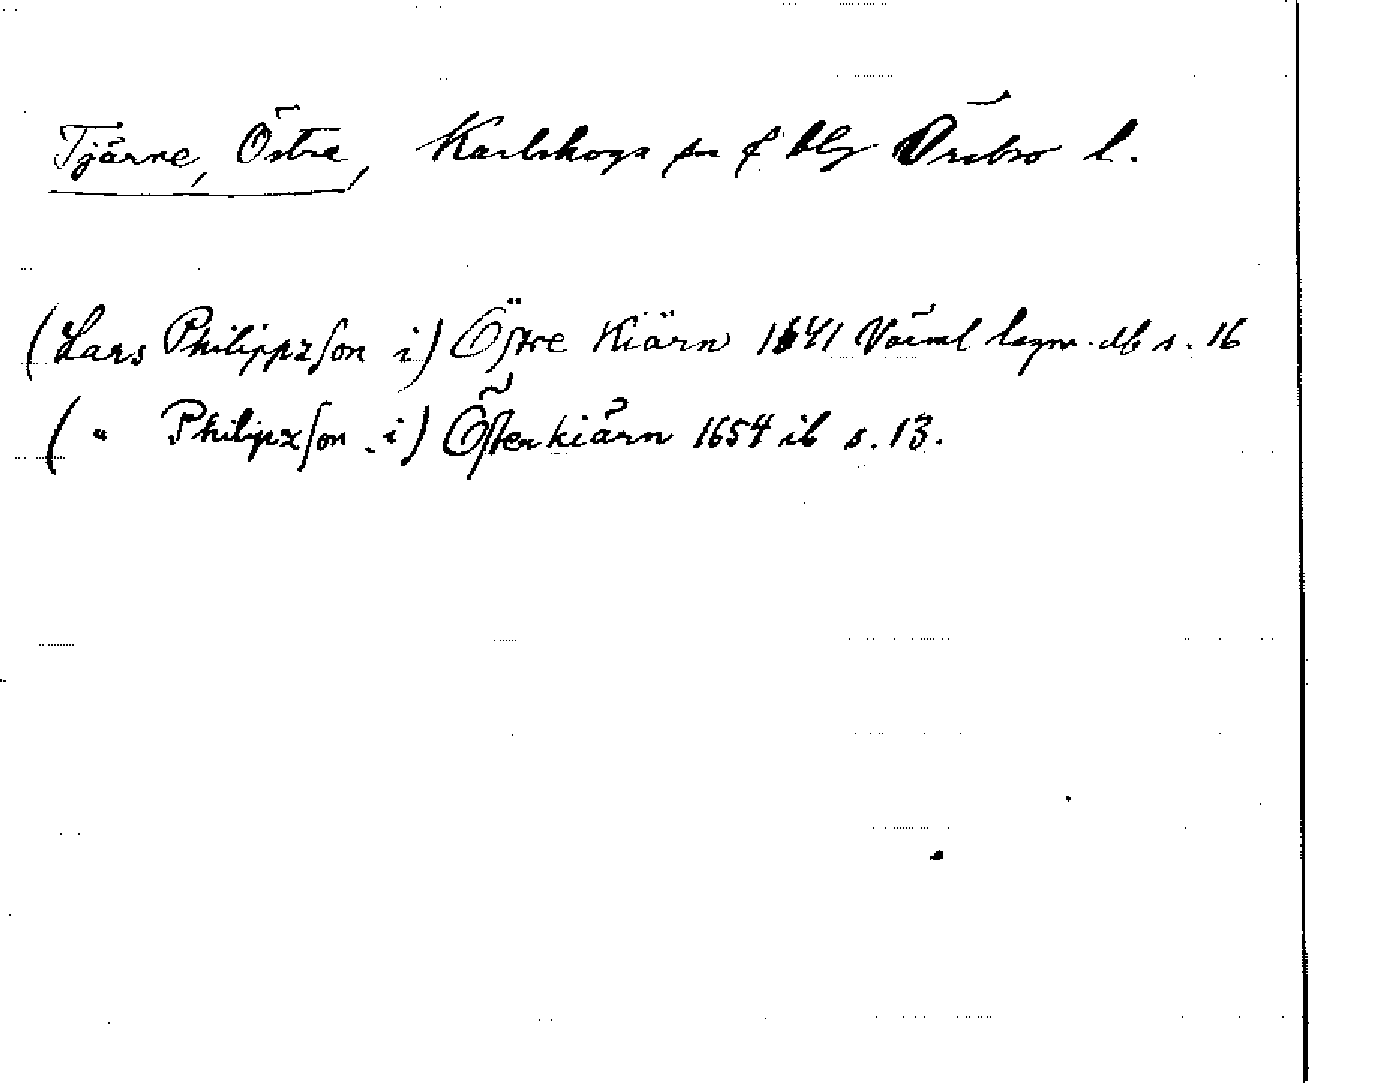 Tjärne, Östra, Karlskoga sn f blg Örebro l.
(Lars Philippzson i) Östre Kiärn 1641 Värml lagm. db s. 16
( " Philipzson i) Österkiärn 1654 ib s. 13.